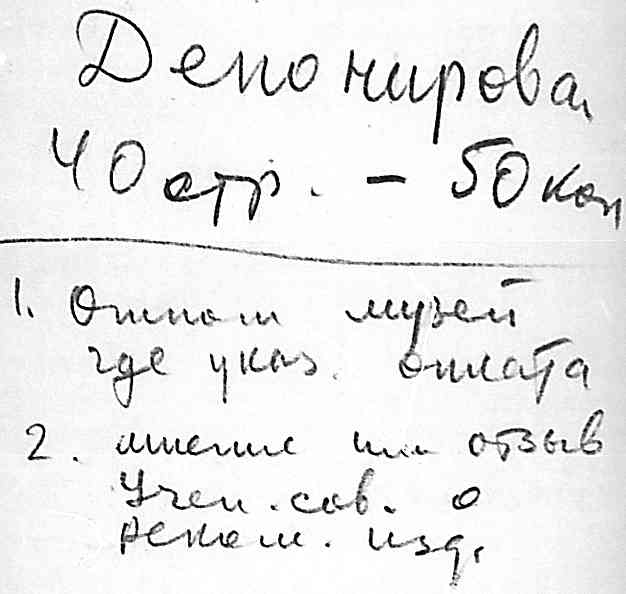 Депонирова
40 стр. – 50 коп
1. музей
где указ. оплата
2. мнение или отзыв
Учен. сов. о
реком. изд.